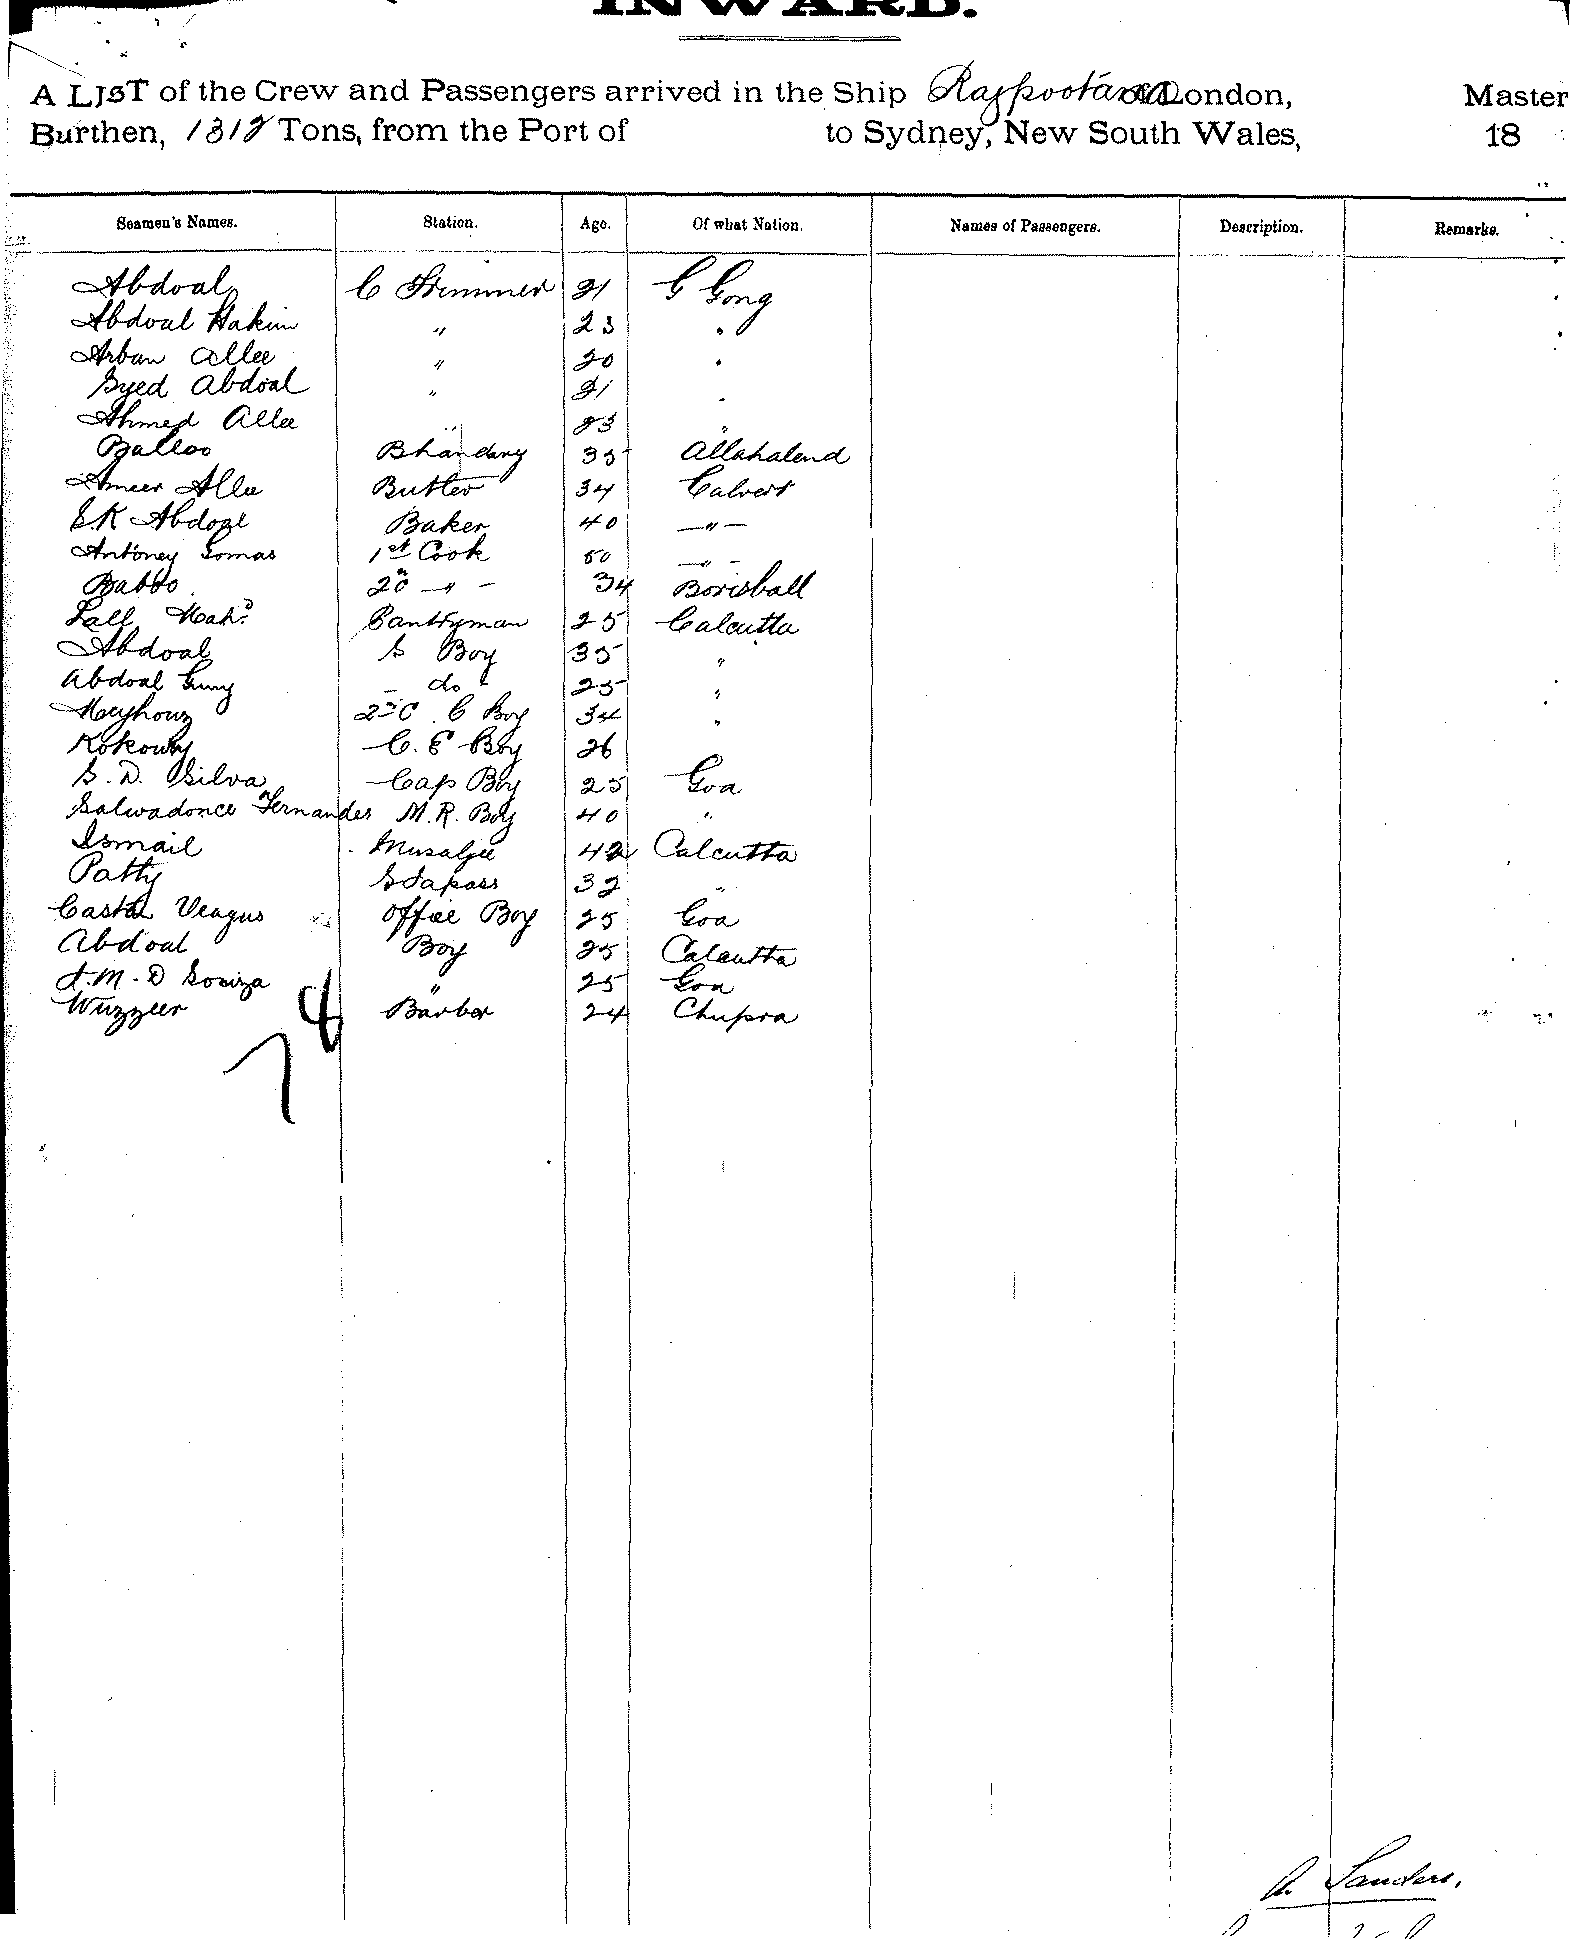 INWARD.
A LIST of the Crew and Passengers arrived in the Ship Rajpootana of London, Master
Burthen, Tons, from the Port of to Sydney, New South Wales, 18
Seamen's Names. Station. Age. Of what Nation. Names of Passengers. Description. Remarks.
Abdoal C Trimmer 21 G Gong
Abdoal Hakim " 23 "
Arban Allee " 20 "
Syed Abdoal " 21 "
Ahmed Allee " 23 "
Balloo Bhandary 35 Allahalend
Ameer Allee Butler 34 Calvert
S.K Abdoal Baker 40 — " —
Antoney Gomas 1st Cook 50 — " —
Baboo 2nd — " — 34 Borisball
Lall Mahd Pantryman 25 Calcutta
Abdoal S Boy 35 "
Abdoal Guny - do - 25 "
34 "
C. E Boy 26
S. D. Silva Cap Boy 25 Goa
Salwadonce Fernandes M. R. Boy 40 "
Ismail Musaljee 42 Calcutta
Patty 32 "
Veagus Office Boy 25 Goa
Abdoal Boy 25 Calcutta
M. D Souza " 25 Goa
Wuzzeer Barber 24 Chupra
78
A. Sanders.